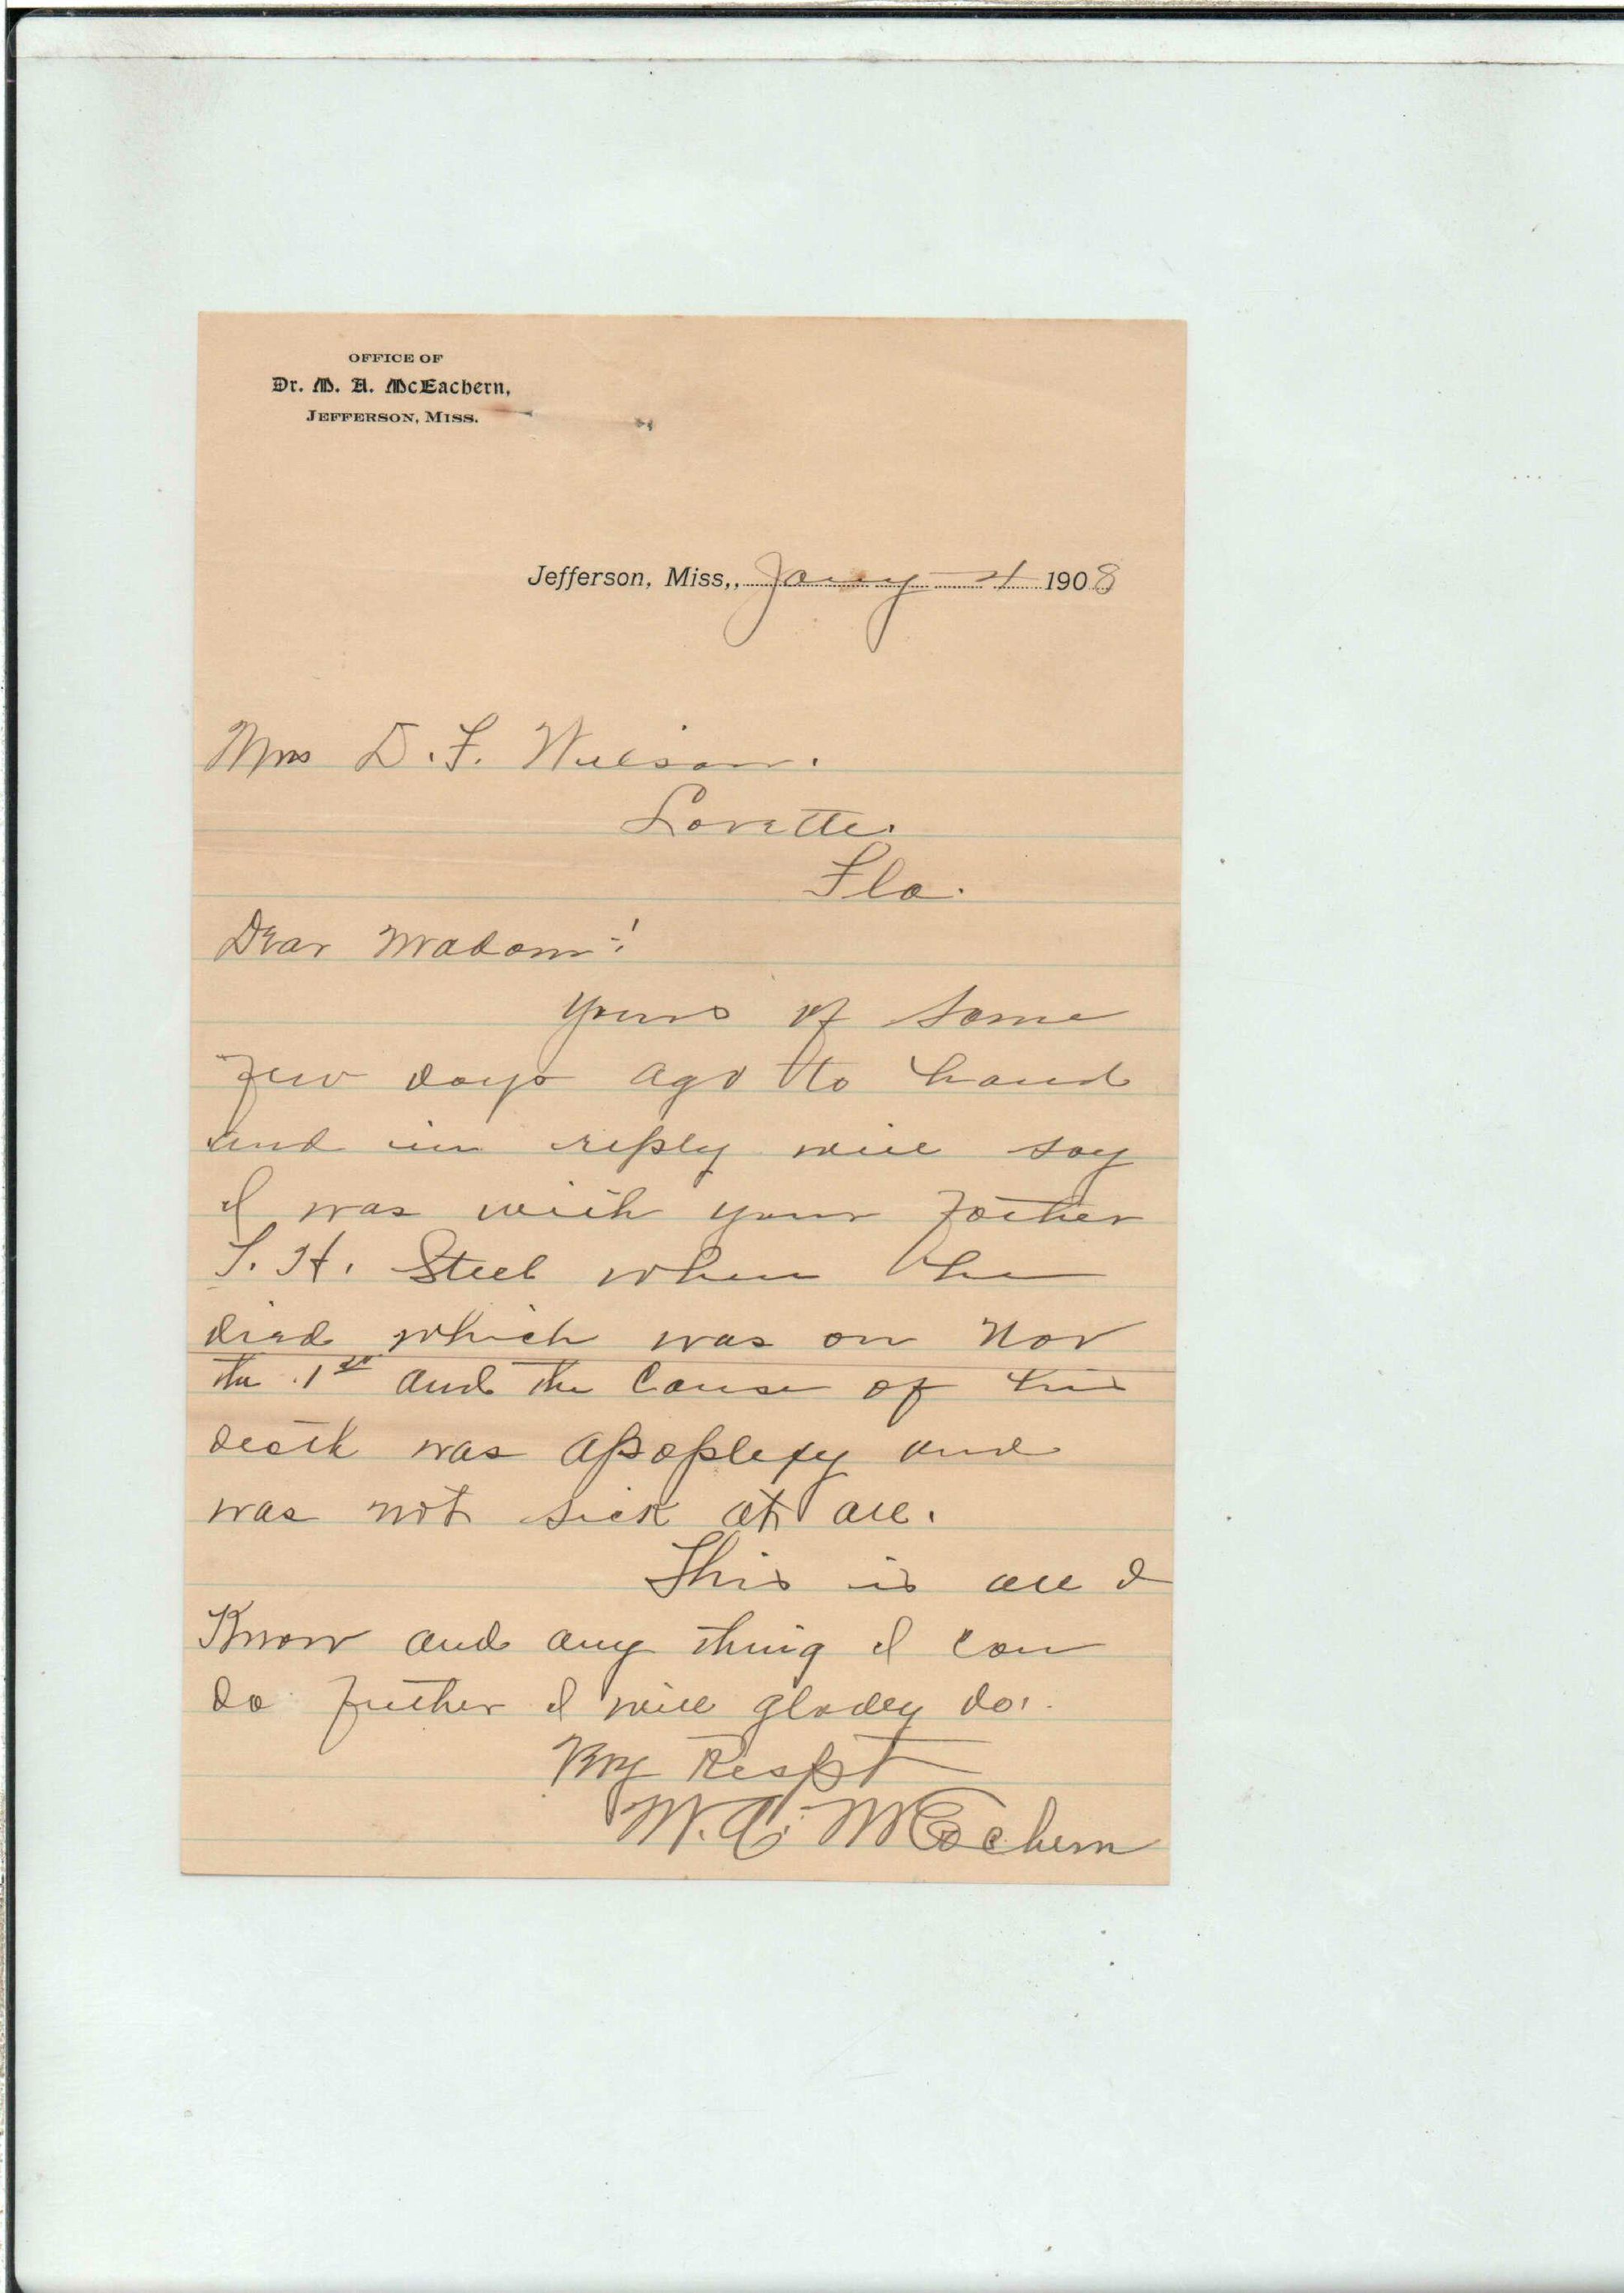 OFFICE OF
Dr. M. A. McEachern,
JEFFERSON, MISS.
Jefferson, Miss,, Jany 4 1908
Mrs D. F. Wilson.
Lovette.
Fla.
Dear Madam:
Yours of some
few days ago to hand
and in reply will say
I was with your Father
S. H. Steel when he
died which was on Nov
the 1st and the Cause of his
death was apoplexy and
was not sick at all.
This is all I
Know and any thing I can
do futher I will gladly do.
Respt
M. A. McEachern